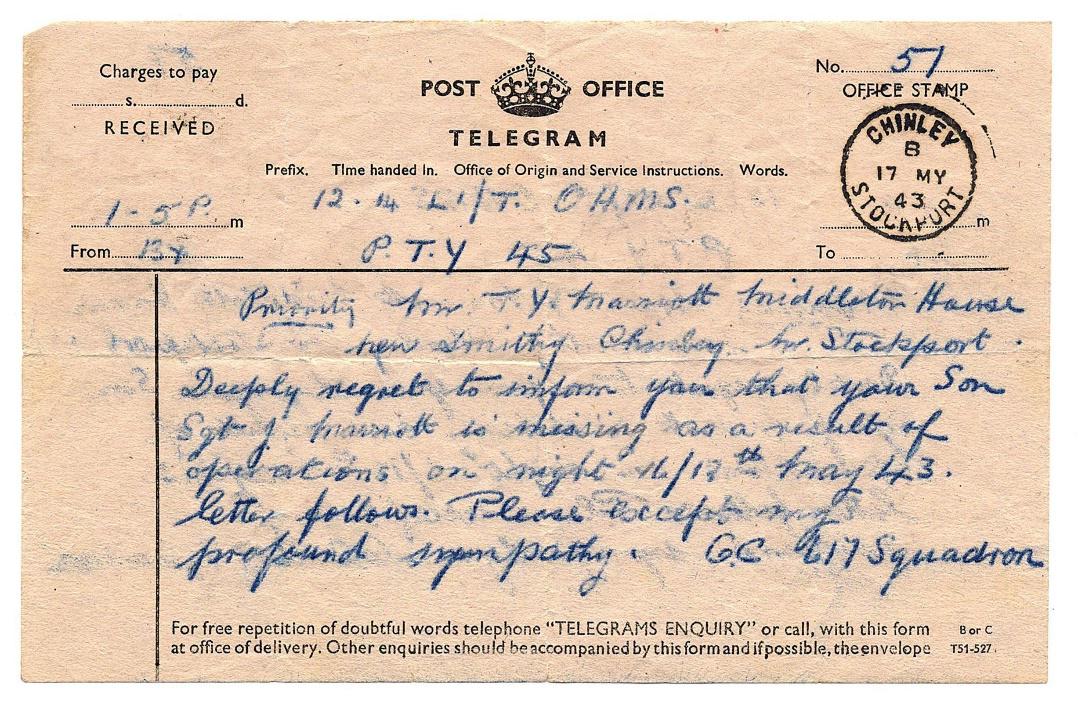 Charges to pay
s. d.
RECEIVED
POST OFFICE
TELEGRAM
No. 51
OFFICE STAMP
CHINLEY
B
17 MY
43
STOCKPORT
Prefix. Time handed in. Office of Origin and Service Instructions. Words.
12.14 L1/T. OHMS.
1-5 P. m
m
From
P.T.Y 45
To
Priority Mr T.Y. Marriott Middleton House
New Smithy Chinley Nr. Stockport.
Deeply regret to inform you that your Son
Sgt J. Marriott is missing as a result of
operations on night 16/17th May 43.
letter follows. Please except my
profound sympathy. O.C 617 Squadron
For free repetition of doubtful words telephone "TELEGRAMS ENQUIRY" or call, with this form
at office of delivery. Other enquiries should be accompanied by this form and if possible, the envelope
B or C
T51-527.